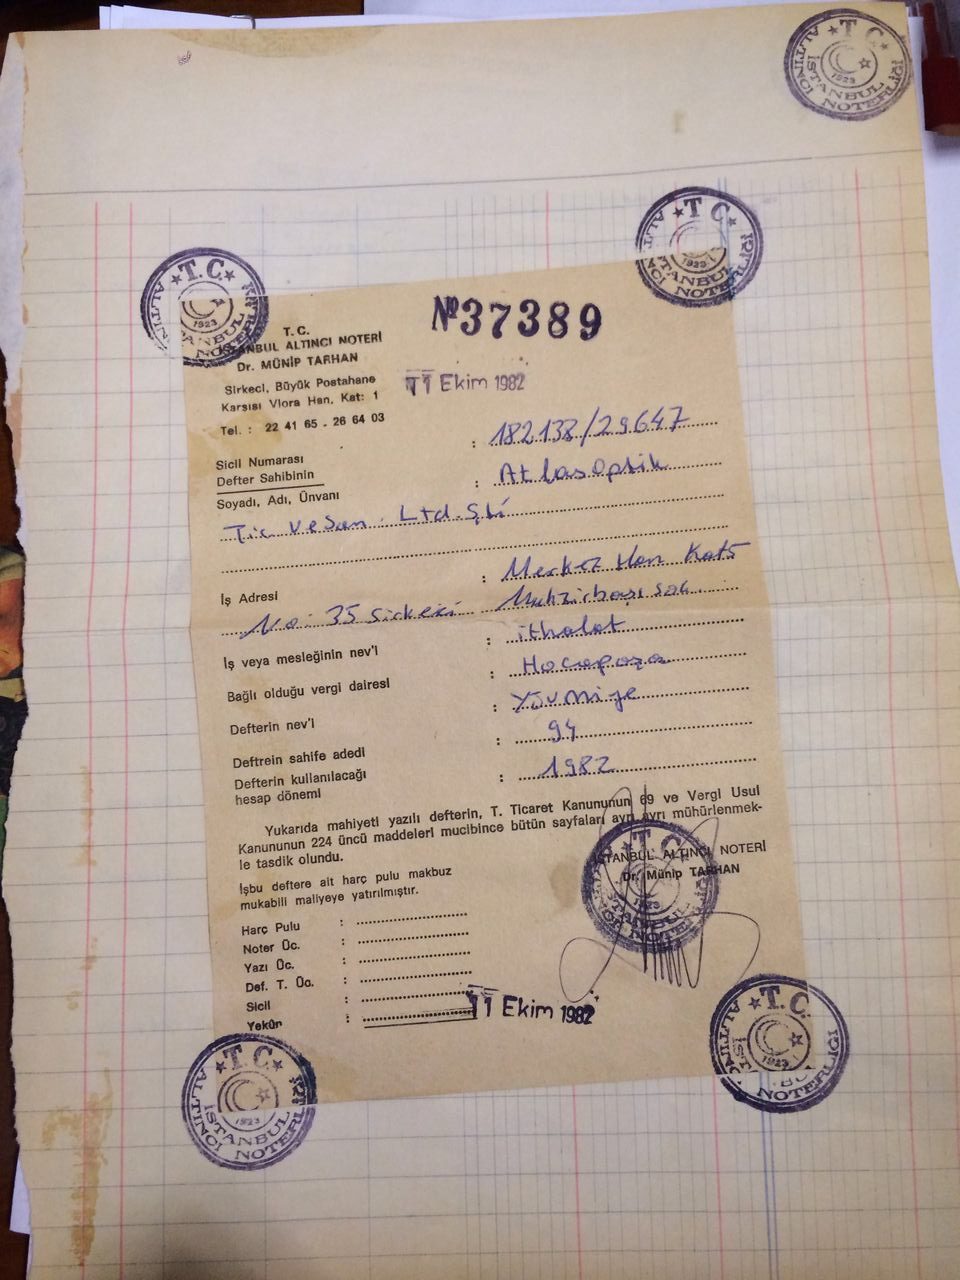 T.C.
ALTINCI
İSTANBUL
NOTERLİĞİ
1923
T.C.
ALTINCI
İSTANBUL
NOTERLİĞİ
1923
T.C.
1923
№37389
T.C.
İSTANBUL ALTINCI NOTERİ
Dr. MÜNİP TARHAN
Sirkeci, Büyük Postahane
Karşısı Vlora Han. Kat: 1
Tel. : 22 41 65 - 26 64 03
11 Ekim 1982
Sicil Numarası : 182138/29647
Defter Sahibinin : Atlas Optik
Soyadı, Adı, Ünvanı
Tic ve San. Ltd. Şti
İş Adresi : Merkez Han Kat 5
No: 35 Sirkeci Muhzirbaşı Sok
İş veya mesleğinin nev'i : ithalat
Bağlı olduğu vergi dairesi : Hocapaşa
Defterin nev'i : Yevmiye
Deftrein sahife adedi : 94
Defterin kullanılacağı
hesap dönemi : 1982
Yukarıda mahiyeti yazılı defterin, T. Ticaret Kanununun 69 ve Vergi Usul
Kanununun 224 üncü maddeleri mucibince bütün sayfaları ayrı ayrı mühürlenmek-
le tasdik olundu.
İSTANBUL ALTINCI NOTERİ
Dr. Münip TARHAN
İşbu deftere ait harç pulu makbuz
mukabili maliyeye yatırılmıştır.
Harç Pulu :
Noter Üc. :
Yazı Üc. :
Def. T. Üc. :
Sicil :
Yekûn :
11 Ekim 1982
T.C.
1923
T.C.
ALTINCI
İSTANBUL
NOTERLİĞİ
1923
T.C.
1923
NOTERLİĞİ